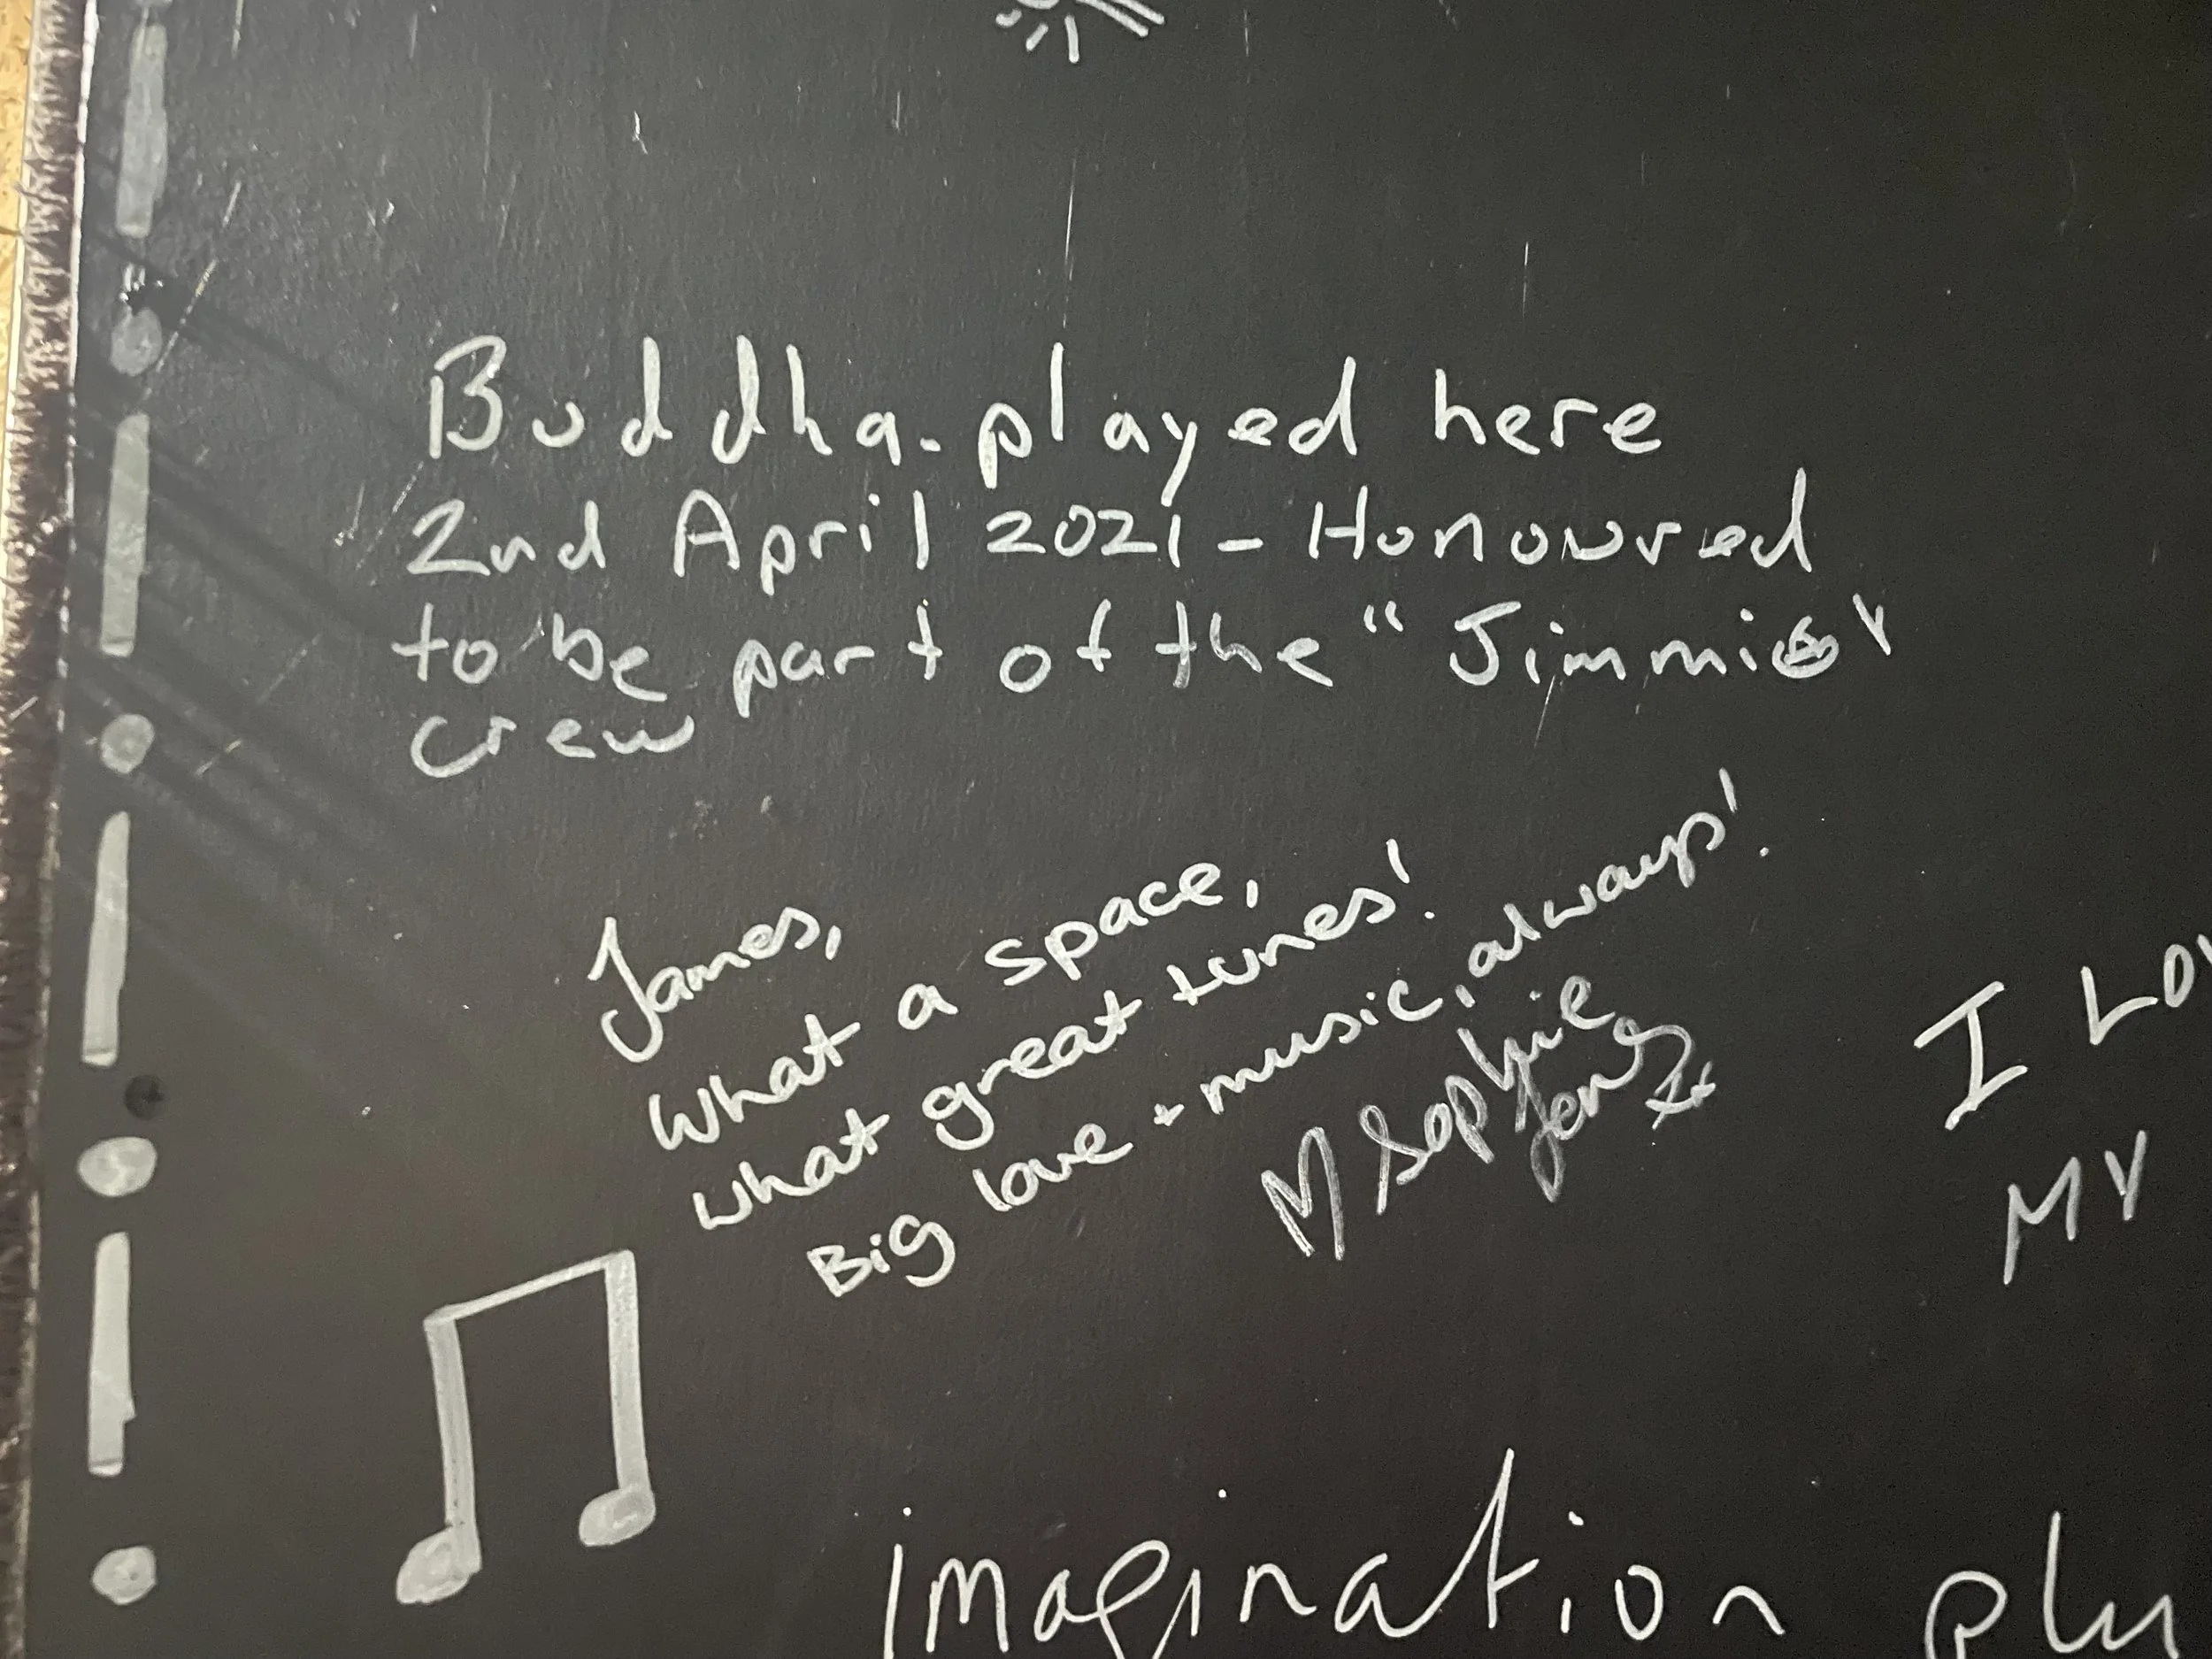 Buddha. played here
2nd April 2021 - Honoured
to be part of the "Jimmies"
crew
James,
What a space,
what great tunes!
Big love + music, always!
M Sophie
I LOV
MY
imagination plu